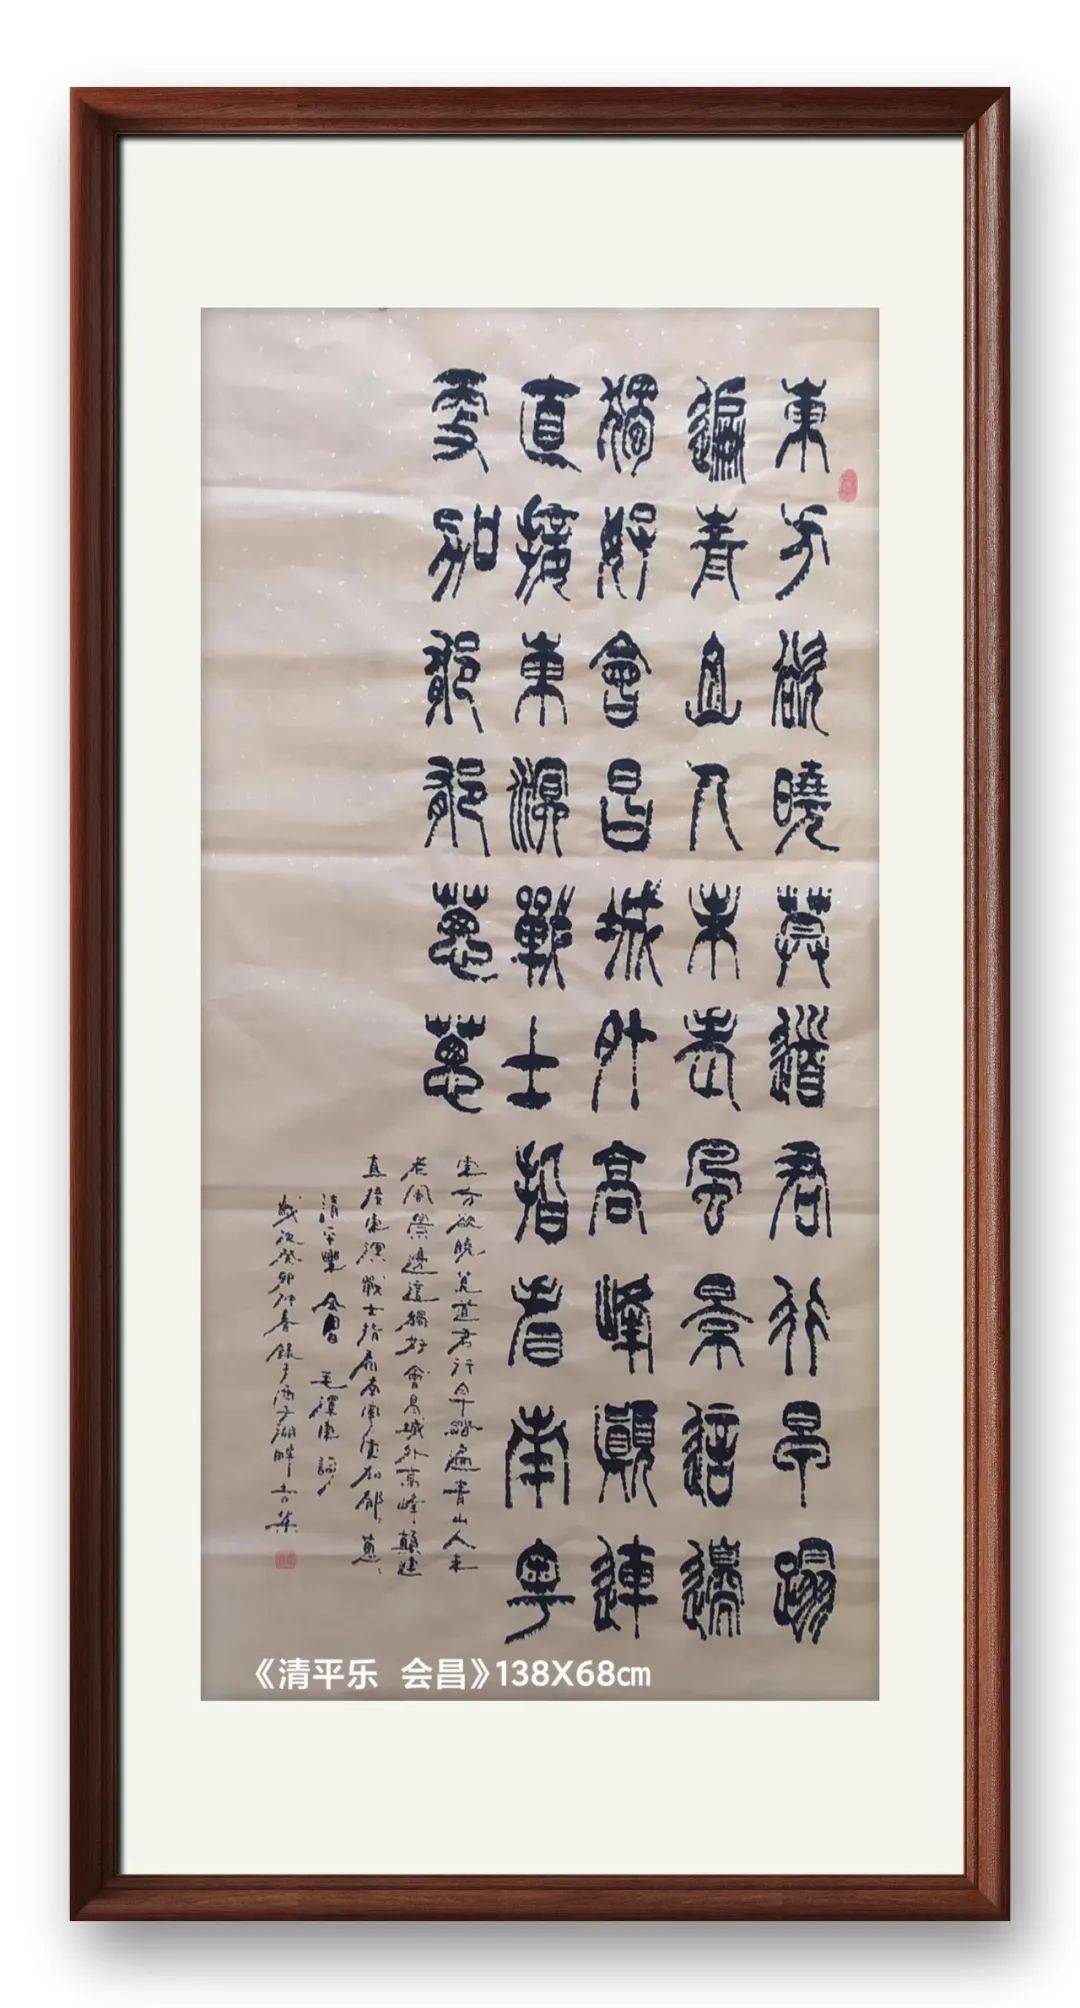 東方欲曉莫道君行早蹋
遍青山人未老風景這邊
獨好會昌城外高峰顛連
直接東溟戰士指看南粵
更加郁郁蔥蔥
東方欲曉莫道君行早踏遍青山人未
老風景邊這獨好會昌城外高峰顛連
直接東溟戰士指看南粵更加郁、蔥、
清平樂 會昌 毛澤東詞
歲次癸卯仲春錄于西子湖畔
《清平乐 会昌》138X68cm